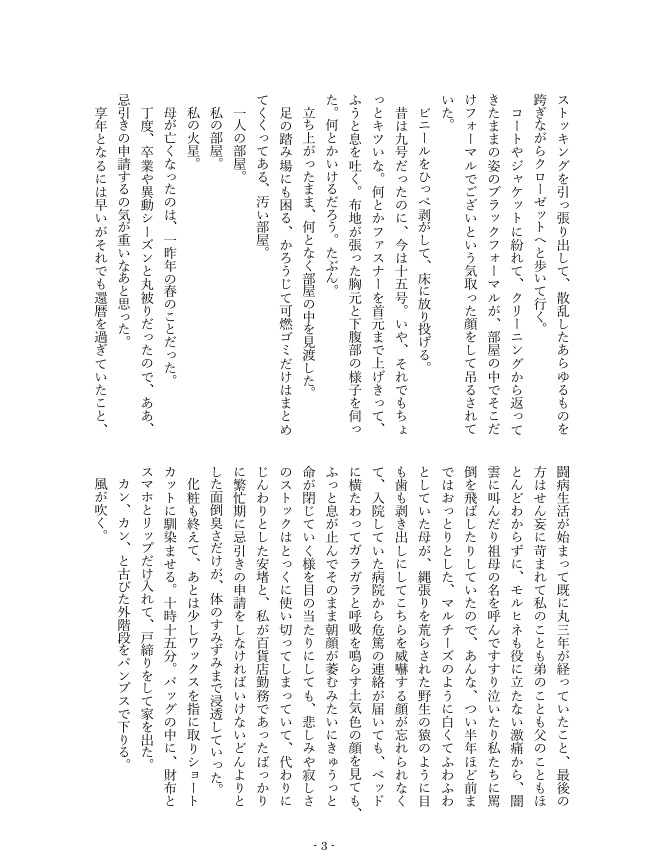 ストッキングを引っ張り出して、散乱したあらゆるものを
跨ぎながらクローゼットへと歩いて行く。
コートやジャケットに紛れて、クリーニングから返って
きたままの姿のブラックフォーマルが、部屋の中でそこだ
けフォーマルでございという気取った顔をして吊るされて
いた。
ビニールをひっぺ剥がして、床に放り投げる。
昔は九号だったのに、今は十五号。いや、それでもちょ
っとキツいな。何とかファスナーを首元まで上げきって、
ふうと息を吐く。布地が張った胸元と下腹部の様子を伺っ
た。何とかいけるだろう。たぶん。
立ち上がったまま、何となく部屋の中を見渡した。
足の踏み場にも困る、かろうじて可燃ゴミだけはまとめ
てくくってある、汚い部屋。
一人の部屋。
私の部屋。
私の火星。
母が亡くなったのは、一昨年の春のことだった。
丁度、卒業や異動シーズンと丸被りだったので、ああ、
忌引きの申請するの気が重いなあと思った。
享年となるには早いがそれでも還暦を過ぎていたこと、
闘病生活が始まって既に丸三年が経っていたこと、最後の
方はせん妄に苛まれて私のことも弟のことも父のこともほ
とんどわからずに、モルヒネも役に立たない激痛から、闇
雲に叫んだり祖母の名を呼んですすり泣いたり私たちに罵
倒を飛ばしたりしていたので、あんな、つい半年ほど前ま
ではおっとりとした、マルチーズのように白くてふわふわ
としていた母が、縄張りを荒らされた野生の猿のように目
も歯も剥き出しにしてこちらを威嚇する顔が忘れられなく
て、入院していた病院から危篤の連絡が届いても、ベッド
に横たわってガラガラと呼吸を鳴らす土気色の顔を見ても、
ふっと息が止んでそのまま朝顔が萎むみたいにきゅうっと
命が閉じていく様を目の当たりにしても、悲しみや寂しさ
のストックはとっくに使い切ってしまっていて、代わりに
じんわりとした安堵と、私が百貨店勤務であったばっかり
に繁忙期に忌引きの申請をしなければいけないどんよりと
した面倒臭さだけが、体のすみずみまで浸透していった。
化粧も終えて、あとは少しワックスを指に取りショート
カットに馴染ませる。十時十五分。バッグの中に、財布と
スマホとリップだけ入れて、戸締りをして家を出た。
カン、カン、と古びた外階段をパンプスで下りる。
風が吹く。
- 3 -